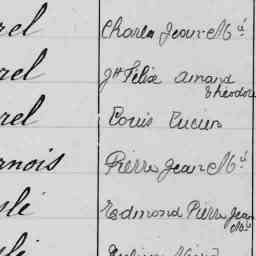 rel Charles Jean M.ie
rel Jh Félix Amand
Théodore
rel Louis Lucien
rnois Pierre Jean M.ie
slé Edmond Pierre Jean
M.ie